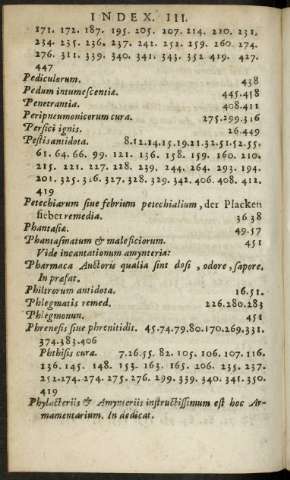 INDEX. III.
171. 172. 187. 195. 205. 207. 214. 210. 231.
234. 235. 236. 237. 241. 252. 259. 260. 274.
276. 311. 339. 340. 341. 343. 352 419. 427.
447
Pediculorum. 438
Pedum intumescentia. 445.418
Penetrantia. 408.411
Peripneumonicorum cura. 275.299.316
Persici ignis. 26.449
Pestis antidota. 8.12.14.15.19.21.32.51.52.55.
61. 64. 66. 99. 121. 136. 158. 159. 160. 210.
215. 221. 227. 228. 239. 244. 264. 293. 194.
201. 325. 326. 327. 328. 329. 342. 406. 408. 412.
419
Petechiarum siue febrium petechialium, der Placken
fieber remedia. 36.38
Phantasiæ. 49.57
Phantasmatum & maleficiorum. 451
Vide incantationum amynteria:
Pharmaca Auctoris qualia sint dosi, odore, sapore,
In præfat.
Philtrorum antidota. 16.51.
Phlegmatis remed. 226.280.283
Phlegmonum. 451
Phrenesis siue phrenitidis. 45.74.79.80.170.269.331.
374.383.406
Phthisis cura. 7.26.55. 82. 105. 106. 107. 116.
136. 145. 148. 153. 163. 165. 206. 235. 237.
252.274.274. 275. 276. 299. 339. 340. 341. 350.
419
Phylacteriis & Amynteriis instructissimum est hoc Ar-
mamentarium. In dedicat.